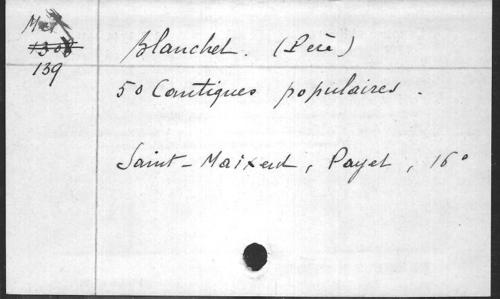 Mus.
1308
139
Blanchet. (Père)
50 Cantiques populaires.
Saint-Maixent, Payet, 16°